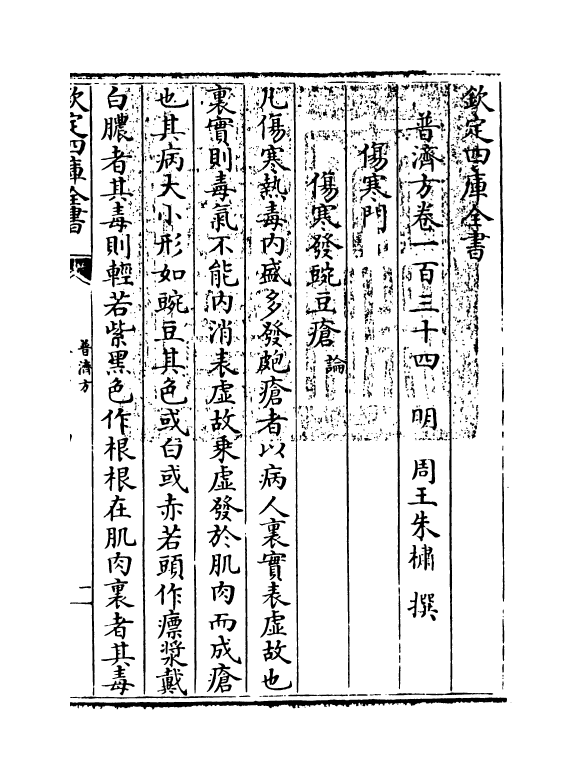 欽定四庫全書
普濟方卷一百三十四　明　周王朱橚　撰
傷寒門
傷寒發豌豆瘡論
凡傷寒熱毒内盛多發皰瘡者以病人裏實表虛故也
裏實則毒氣不能内消表虛故乗虛發於肌肉而成瘡
也其病大小形如豌豆其色或白或赤若頭作瘭漿戴
白膿者其毒則輕若紫黑色作根根在肌肉裏者其毒
欽定四庫全書
普濟方
二